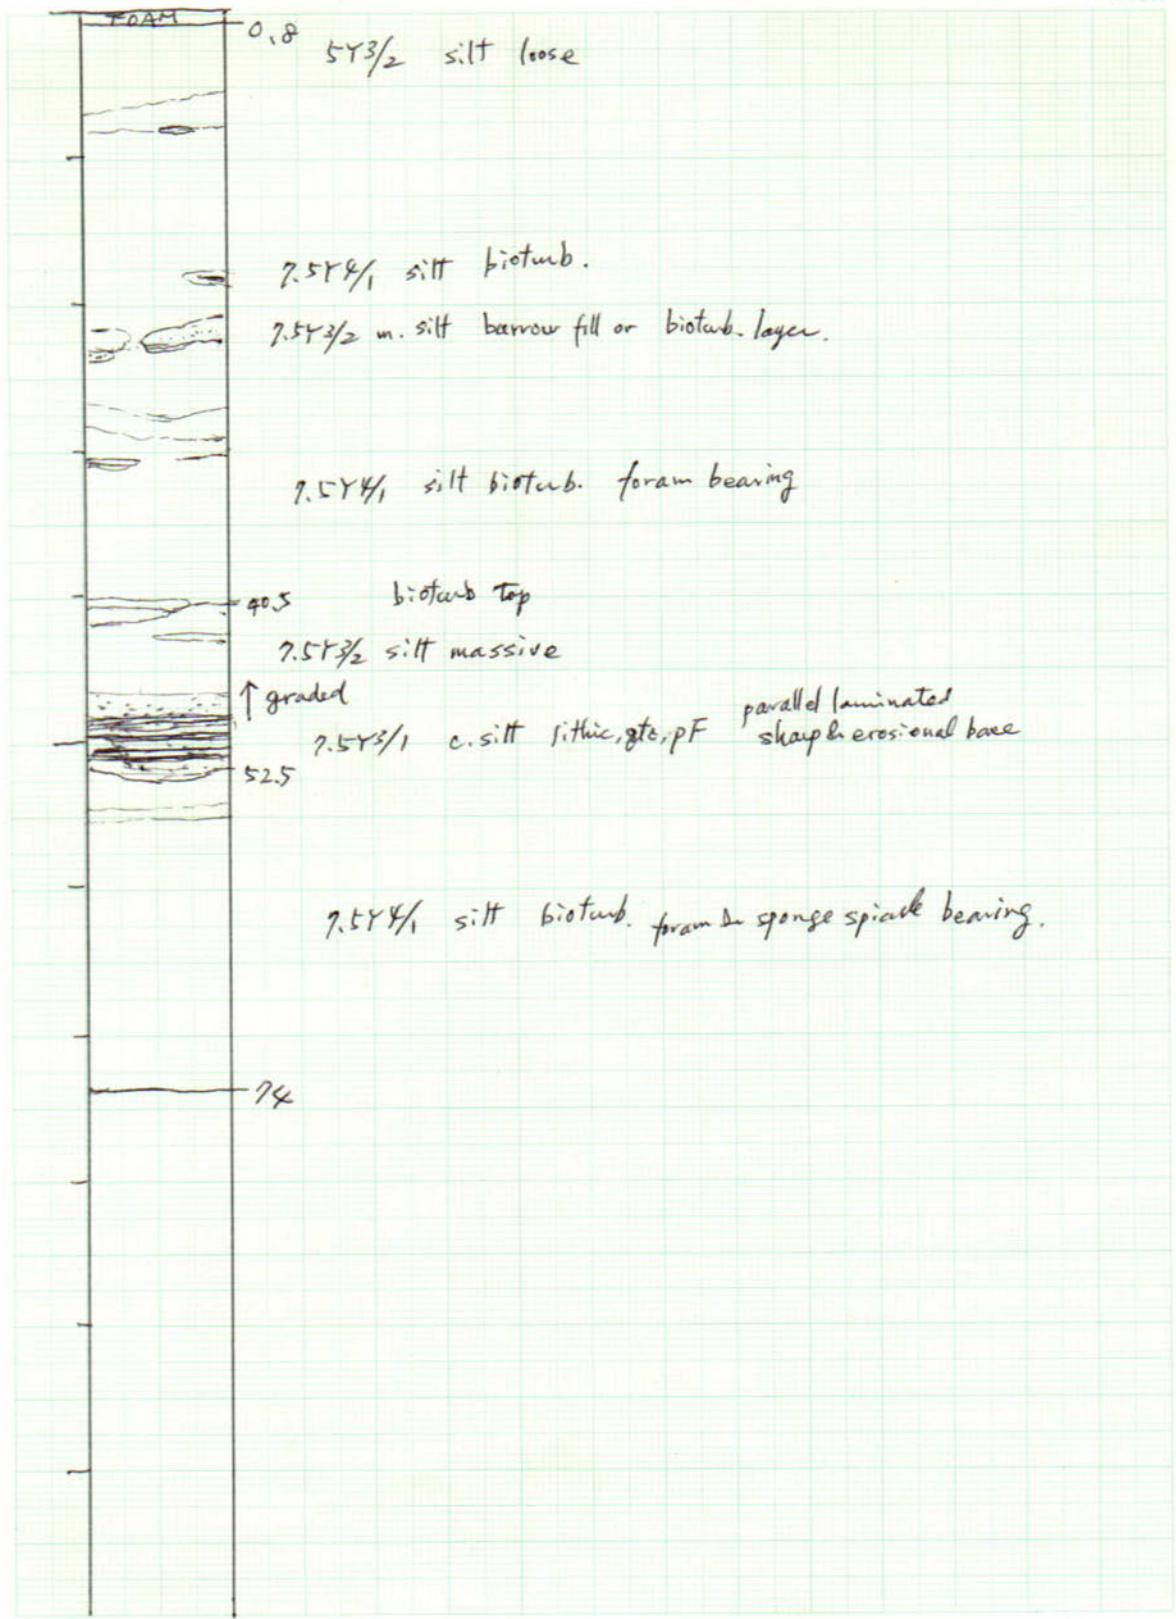 FOAM
0.8
5Y3/2 silt loose
7.5Y4/1 silt bioturb.
7.5Y3/2 m. silt burrow fill or bioturb. layer.
7.5Y4/1 silt bioturb. foram bearing
40.5 bioturb top
7.5Y3/2 silt massive
↑ graded
7.5Y3/1 c. silt lithic, qtz, pF parallel laminated
sharp & erosional base
52.5
7.5Y4/1 silt bioturb. foram & sponge spicule bearing.
74